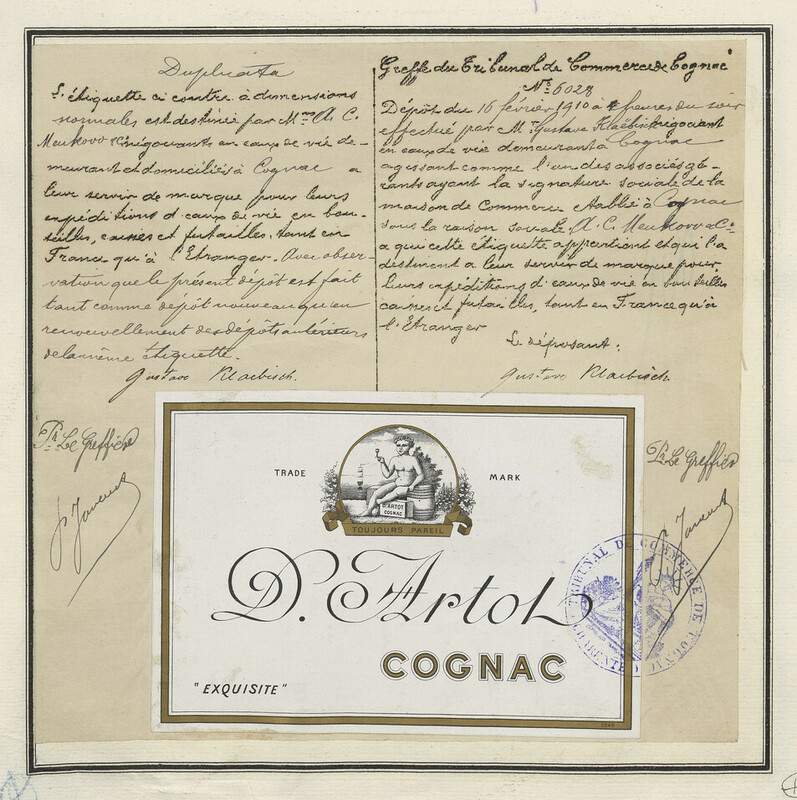 Duplicata
L'étiquette ci contre à dimensions
normales est destinée par Mrs A. C.
Meukow & Cie négociants en eaux de vie de-
meurant et domiciliés à Cognac a
leur servir de marque pour leurs
expéditions d'eaux de vie en bou-
teilles, caisses et futailles, tant en
France qu'à l'Etranger. Avec obser-
vation que le présent dépôt est fait
tant comme dépôt nouveau qu'en
renouvellement des dépôts antérieurs
de la même étiquette.
Gustave Klaebisch.
Pr Le Greffier
Greffe du Tribunal de Commerce de Cognac
No 6028
Dépôt du 16 février 1910 à heures du soir
effectué par Mr Gustave Klaebisch négociant
en eaux de vie demeurant à Cognac
agissant comme l'un des associés gé-
rants ayant la signature sociale de la
maison de Commerce établie à Cognac
sous la raison sociale A. C. Meukow & Cie
a qui cette étiquette appartient et qui l'a
destinent a leur servir de marque pour
leurs expéditions d'eaux de vie en bouteilles
caisses et futailles, tant en France qu'à
l'Etranger
Le déposant:
Gustave Klaebisch.
Pr Le Greffier
TRADE MARK
D'ARTOT
COGNAC
TOUJOURS PAREIL
D. Artot
COGNAC
"EXQUISITE"
TRIBUNAL DE COMMERCE DE COGNAC
(CHARENTE)